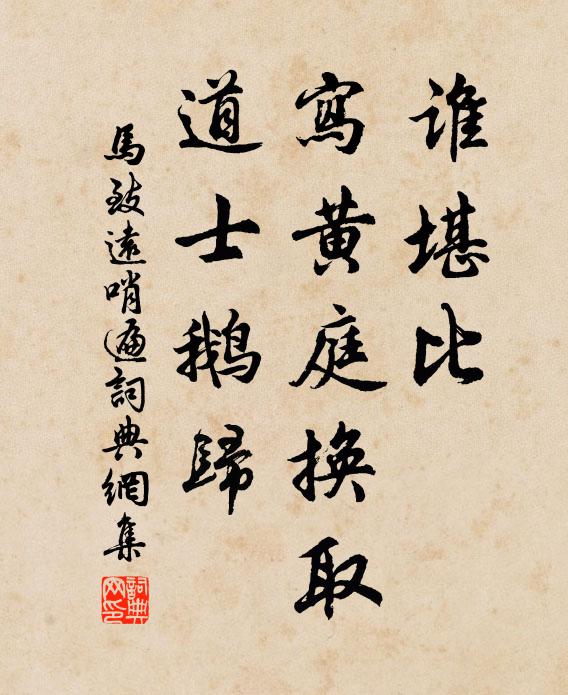 誰堪比
寫黃庭換取
道士鵝歸
馬致遠哨遍詞典網集
詞典網印